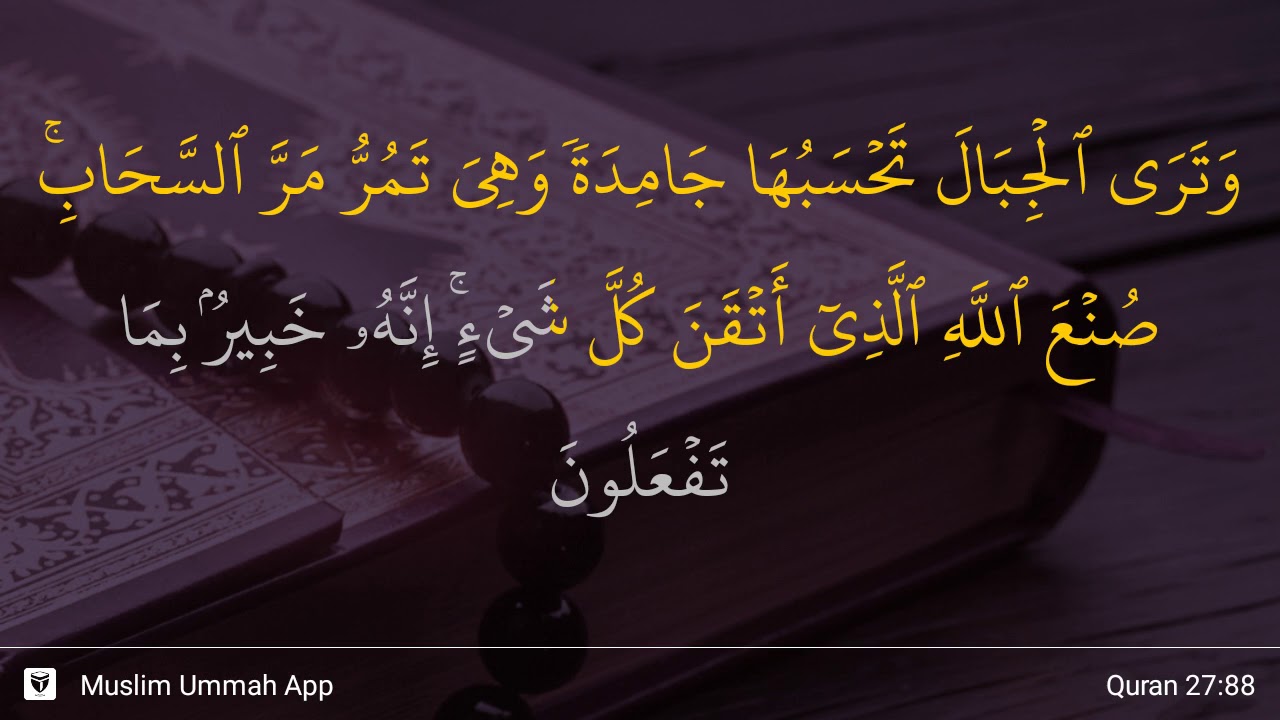 وَتَرَى ٱلْجِبَالَ تَحْسَبُهَا جَامِدَةً وَهِىَ تَمُرُّ مَرَّ ٱلسَّحَابِ ۚ
صُنْعَ ٱللَّهِ ٱلَّذِىٓ أَتْقَنَ كُلَّ شَىْءٍ ۚ إِنَّهُۥ خَبِيرٌۢ بِمَا
تَفْعَلُونَ
Muslim Ummah App
Quran 27:88